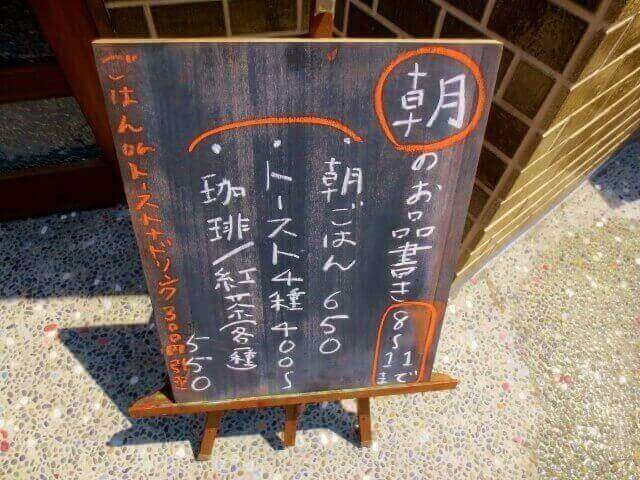 朝のお品書き 8〜11まで
・朝ごはん 650
・トースト4種 400〜
・珈琲/紅茶(各種) 550
ごはんorトーストナドリンク 300円引き